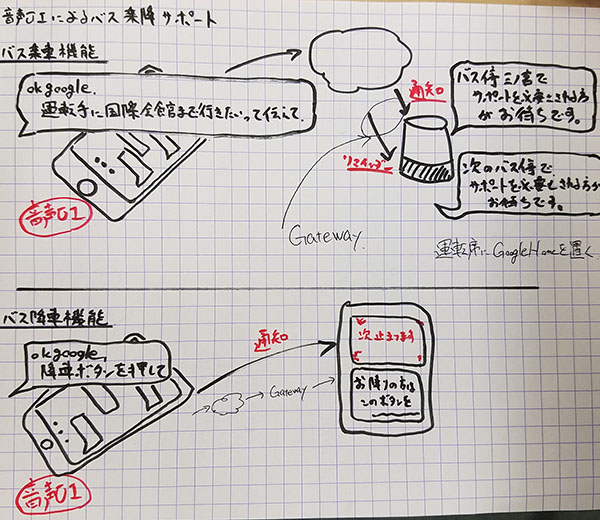 音声UIによるバス乗降サポート
バス乗車機能
ok google,
運転手に国際会館まで行きたいって伝えて.
通知
リマインダー
バス停 三ノ宮で
サポートを必要とされる方
がお待ちです。
次のバス停で
サポートを必要とされる方が
お待ちです。
音声UI
Gateway.
運転席にGoogleHomeを置く
バス降車機能
ok google,
降車ボタンを押して
通知
Gateway
次止まります
お降りの方は
このボタンを
音声UI